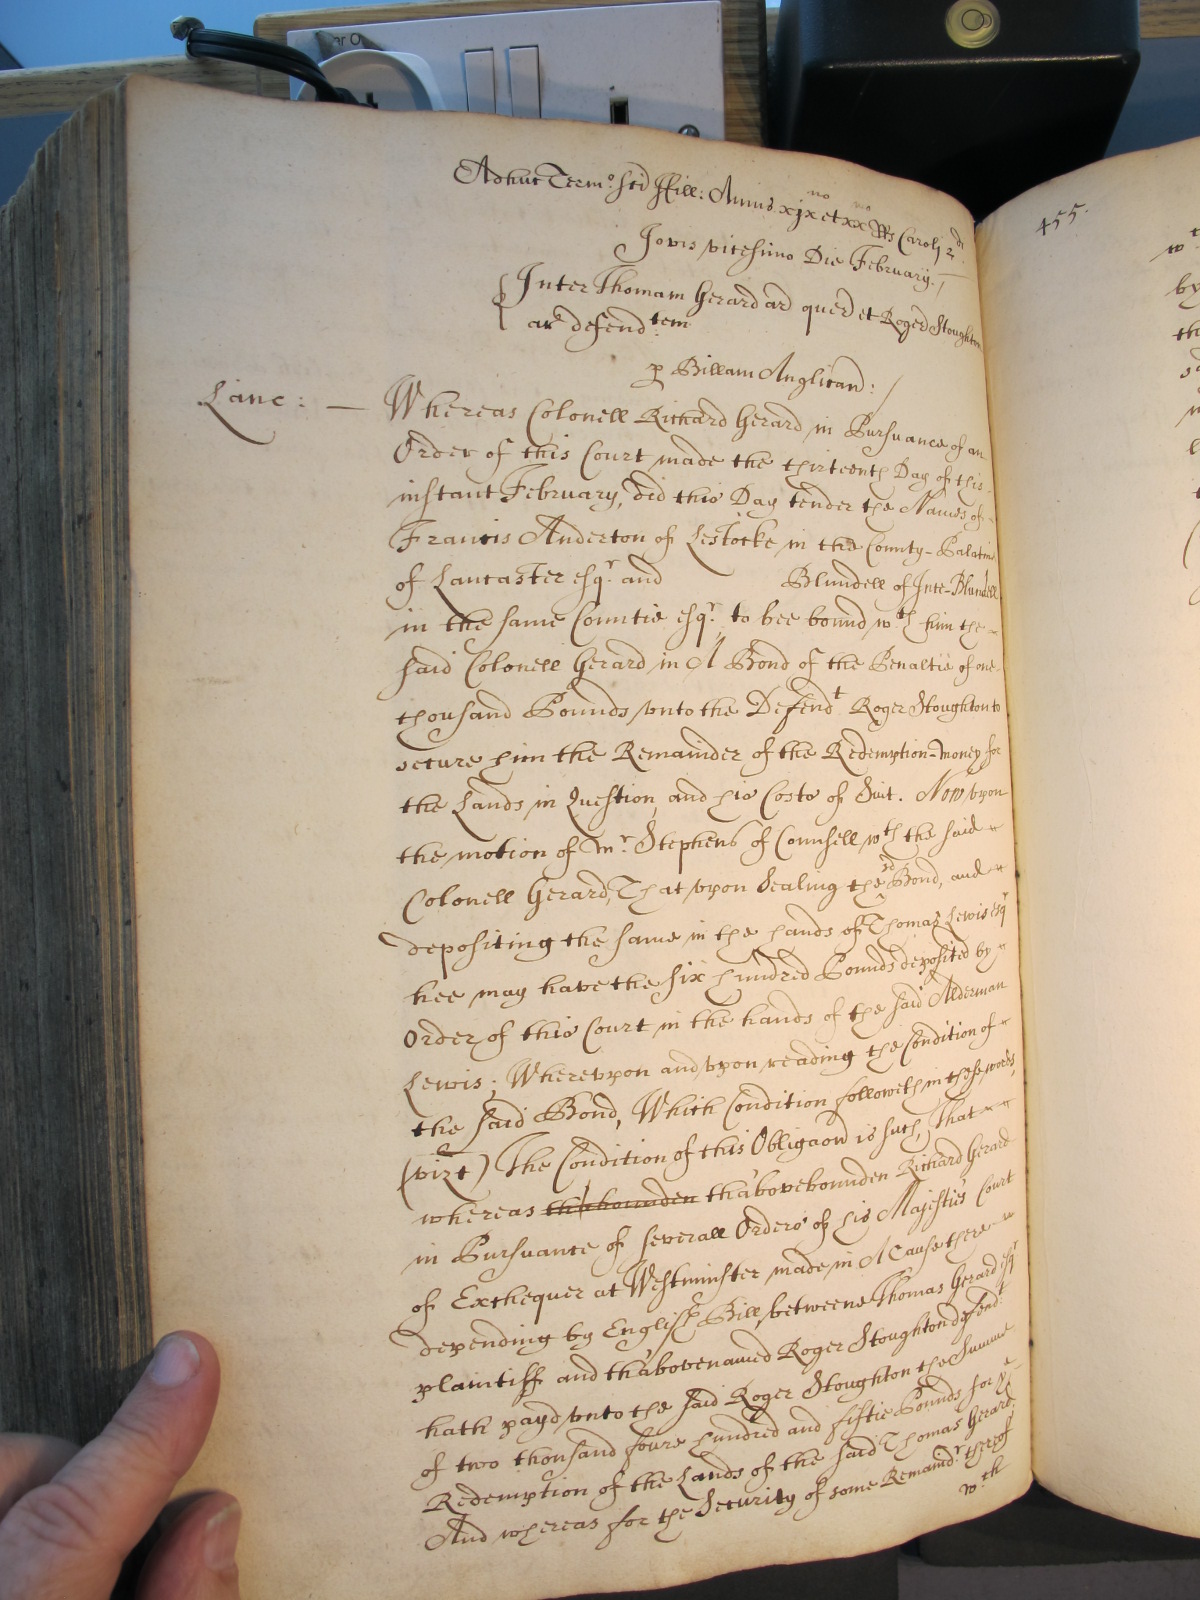 Adhuc Termo. Sci Hill: Annis xjxno et xxno Rs Caroli 2di
Jovis vicesimo Die February./
Inter Thomam Gerard ar quer et Roger Stoughton
ar defendtem
p Billam Anglican: /
Lanc: — Whereas Colonell Richard Gerard in Pursuance of an
Order of this Court made the thirteenth Day of this
instant February, did this Day tender the Names of
Francis Anderton of Lestocke in the County-Palatine
of Lancaster esqr. and Blundell of Ince-Blundell
in the same Countie esqr. to bee bound wth him the
said Colonell Gerard in A Bond of the Penaltie of one
thousand Pounds vnto the Defendt Roger Stoughton to
secure him the Remainder of the Redemption-money for
the Lands in Question, and his Costs of Suit. Now vpon
the motion of mr. Stephens of Counsell wth the said
Colonell Gerard, That vpon Sealing the sd Bond, and
depositing the same in the hands of Thomas Lewis esqr
hee may have the six hundred Pounds deposited by
Order of this Court in the hands of the said Alderman
Lewis; Wherevpon and vpon reading the Condition of
the said Bond, Which Condition followeth in these words,
(vizt) The Condition of this Obligaon is such, That
whereas thabovebounden Richard Gerard
in Pursuance of severall Orders of his Majesties Court
of Exchequer at Westminster made in A Cause there
depending by English Bill, betweene Thomas Gerard esqr
plaintiff and thabovenamed Roger Stoughton defendt.
hath payd vnto the said Roger Stoughton the Summe
of two thousand foure hundred and fiftie Pounds for ye
Redemption of the Lands of the said Thomas Gerard.
And whereas for the Security of some Remaindr. thereof
wth
455.
wt
by